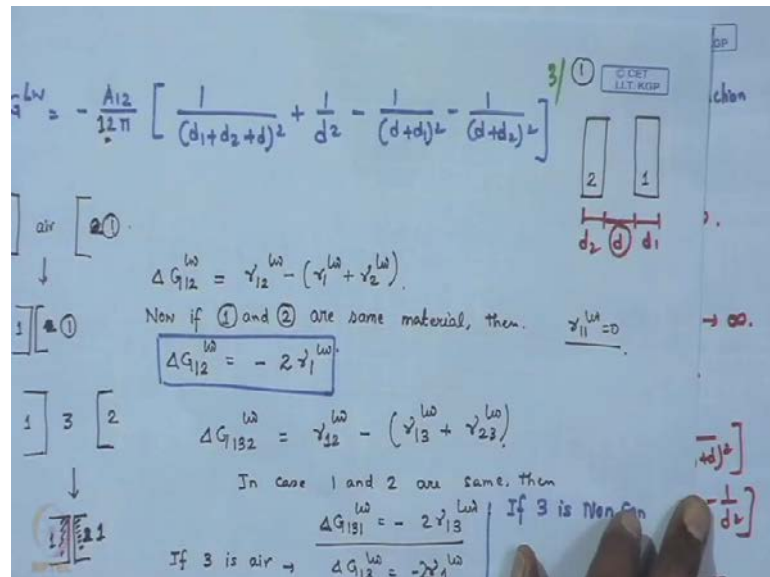 G^LW = - A12/12π [ 1/(d1+d2+d)² + 1/d² - 1/(d+d1)² - 1/(d+d2)² ]
3/ ①
C CET
I.I.T. KGP
GP
ction
2 1
d2 d d1
air [ 2①.
ΔG12^LW = γ12^LW - (γ1^LW + γ2^LW).
Now if ① and ② are same material, then. γ11^LW = 0
→ ∞.
1 ] [ ①
ΔG12^LW = - 2 γ1^LW.
1 ] 3 [ 2
ΔG132^LW = γ12^LW - (γ13^LW + γ23^LW)
+d)² ]
In case 1 and 2 are same, then
ΔG131^LW = - 2 γ13^LW
If 3 is Non
- 1/d² ]
1 21
If 3 is air → ΔG12^LW = -2γ1^LW
NPTEL